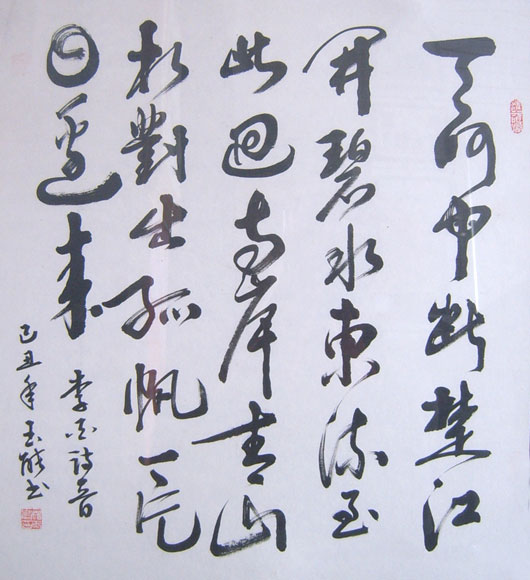 天門中斷楚江
開碧水東流至
此迴兩岸青山
相對出孤帆一片
日邊來
李白詩
己丑年玉能书